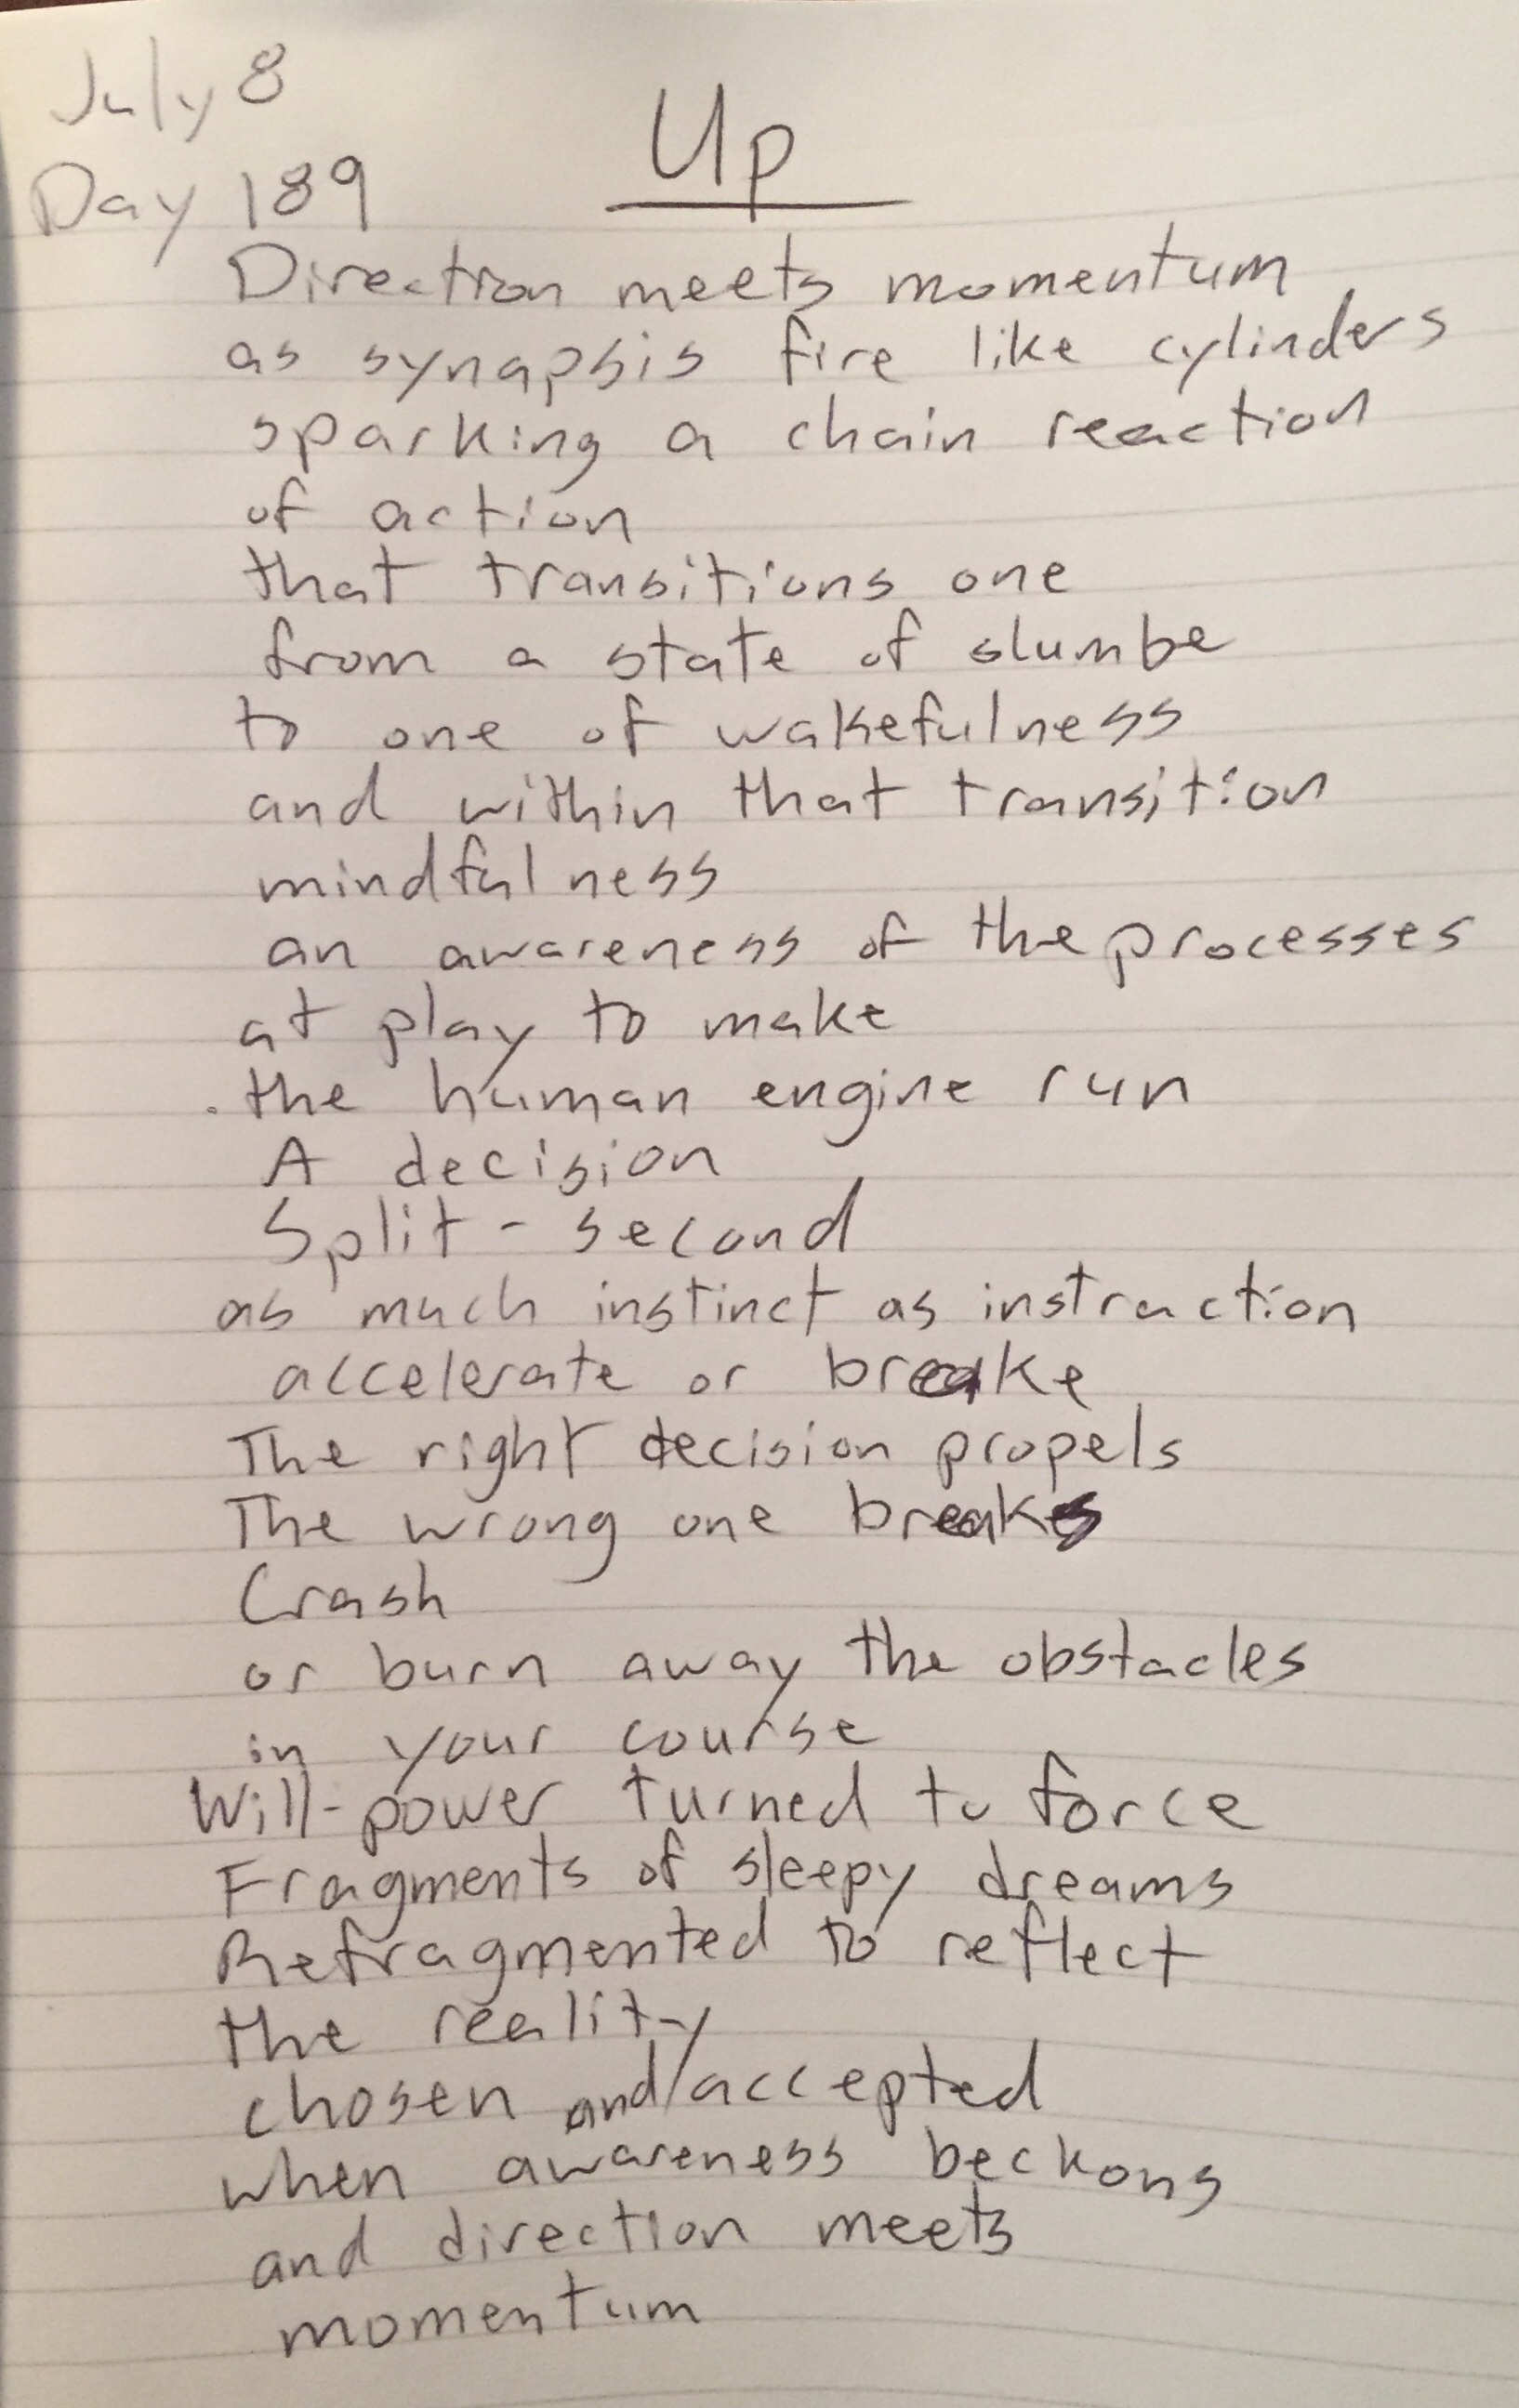 July 8
Up
Day 189
Direction meets momentum
as synapsis fire like cylinders
sparking a chain reaction
of action
that transitions one
from a state of slumbe
to one of wakefulness
and within that transition
mindfulness
an awareness of the processes
at play to make
the human engine run
A decision
Split-second
as much instinct as instruction
accelerate or breake
The right decision propels
The wrong one breaks
Crash
or burn away the obstacles
in your course
Will-power turned to force
Fragments of sleepy dreams
Refragmented to reflect
the reality
chosen and/accepted
when awareness beckons
and direction meets
momentum